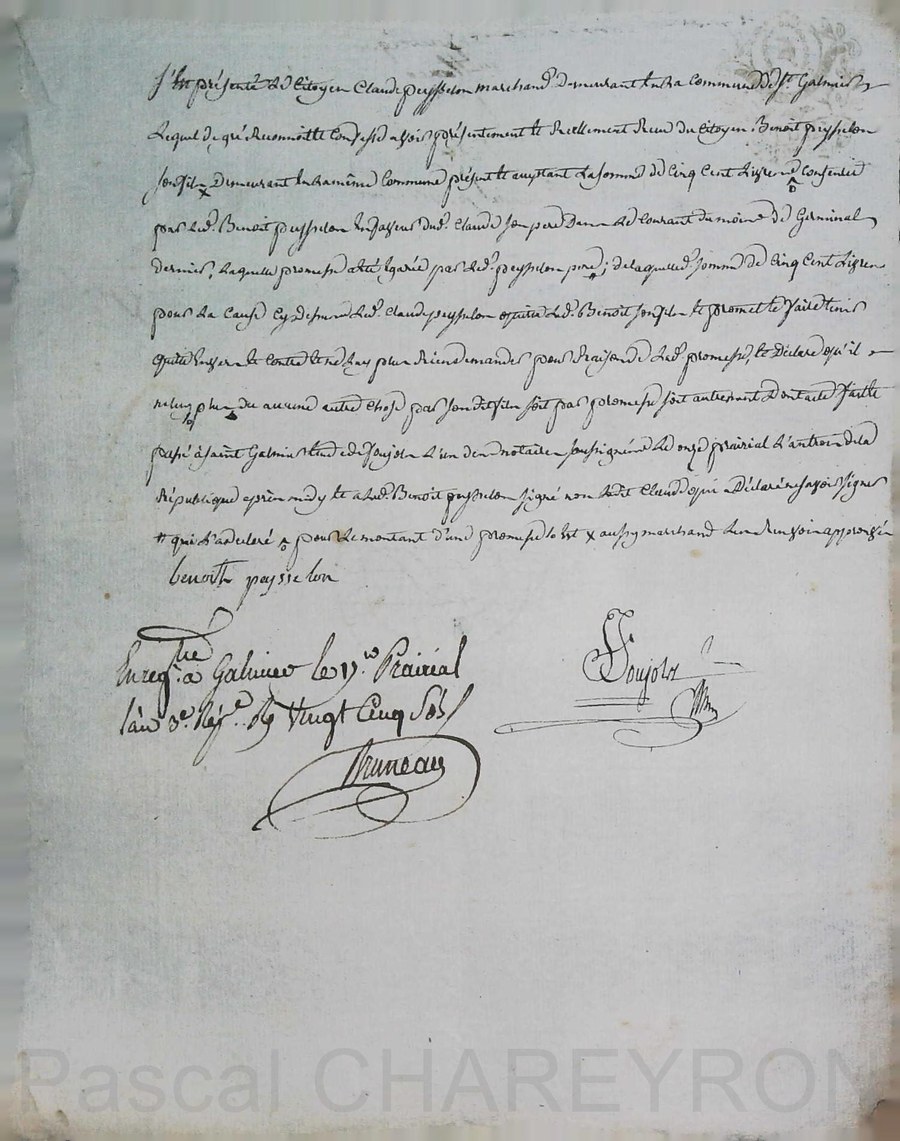 S'est présenté le Citoyen Claude peysselon marchand demeurant en la Commune de St. Galmier
lequel de gré reconnoit et Confesse avoir présentement et réellement reçu du Citoyen Benoit peysselon
son fils x demeurant en la même Commune présent et acceptant la somme de Cinq Cent livres Consentie
par led. Benoit peysselon en faveur dud. Claude son pere dans le Courant du mois de Germinal
dernier, laquelle promesse a été égarée par led. peysselon pere, de laquelle d. somme de Cinq Cent livres
pour la Cause Cy dessus led. Claude peysselon quitte led. Benoit son fils et promet le faire tenir
quitte envers et Contre et ne luy plus rien demander pour raison de lad. promesse, et déclare qu'il
ne luy plus du aucune autre Chose par son dit fils soit par promesse soit autrement dont acte fait et
passé à Saint Galmier étude de Soujol l'un des notaires soussigné le onze prairial l'an trois de la
République après midy et a led. Benoit peysselon signé non ledit Claude qui a déclaré ne savoir signer
qui l'a declaré pour le montant d'une promesse x aussy marchand renvoi approuvé
benoith peysselon
Enregtré à Galmier le 17 Prairial
l'an 3e. Rép. R Vingt Cinq Sols
Soujol
Bruneau
Pascal CHAREYRON